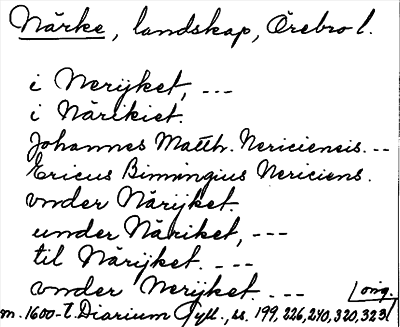 Närke, landskap, Örebro l.
i Nerijket, ---
i Närikiet.
Johannes Matth. Nericiensis. --
Ericus Bimmingius Nericiens.
vnder Närijket.
under Näriket, ---
til Närijket. ---
vnder Nerijket ---
Orig.
m. 1600-t. Diarium Gyll., ss. 199, 226, 240, 320, 323